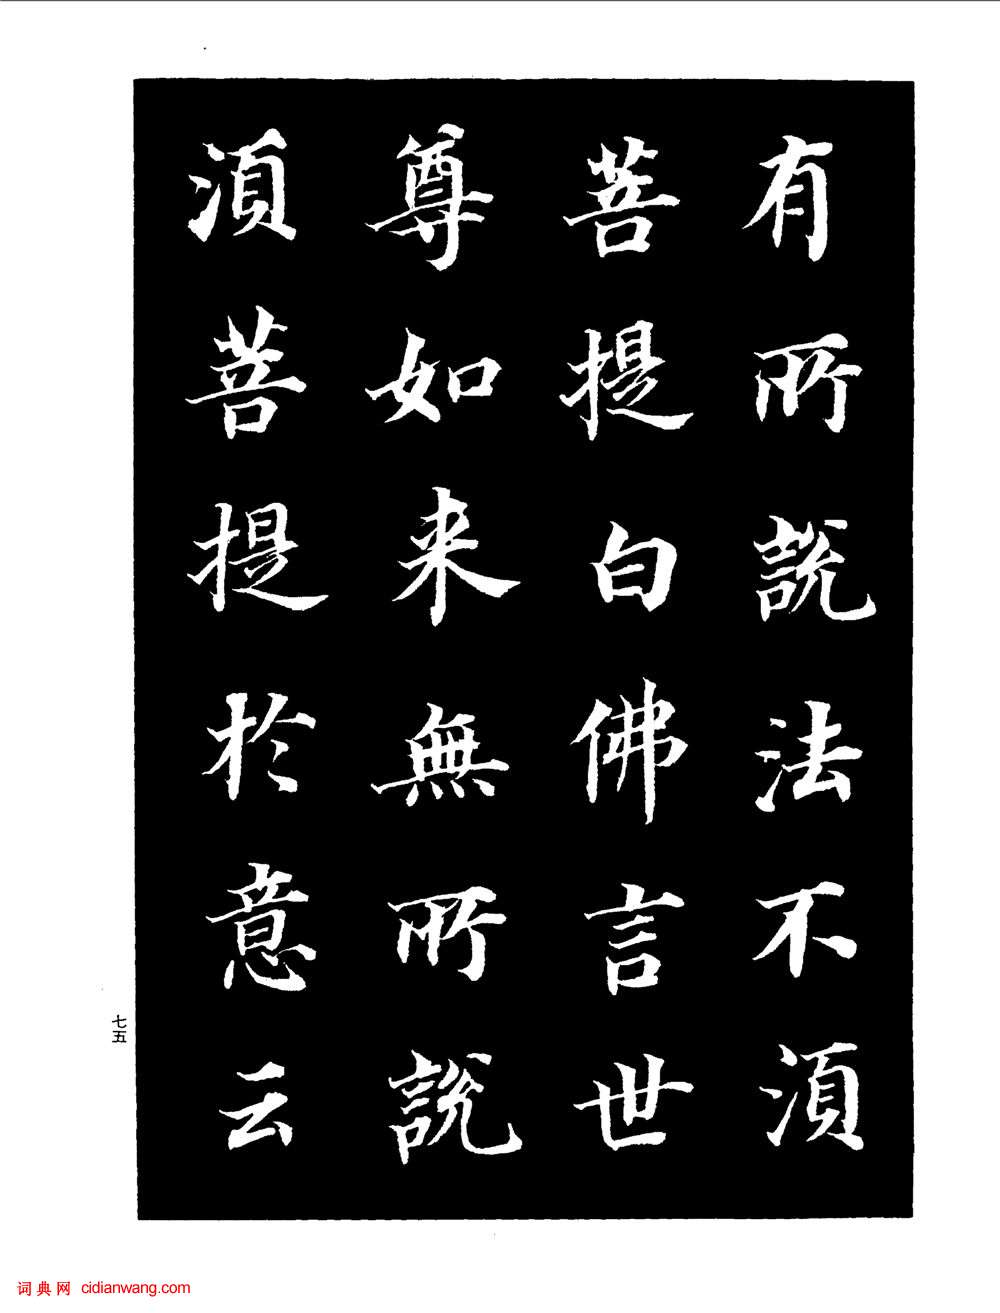 有所說法不湏
菩提白佛言世
尊如来無所說
湏菩提於意云
七五
词典网 cidianwang.com